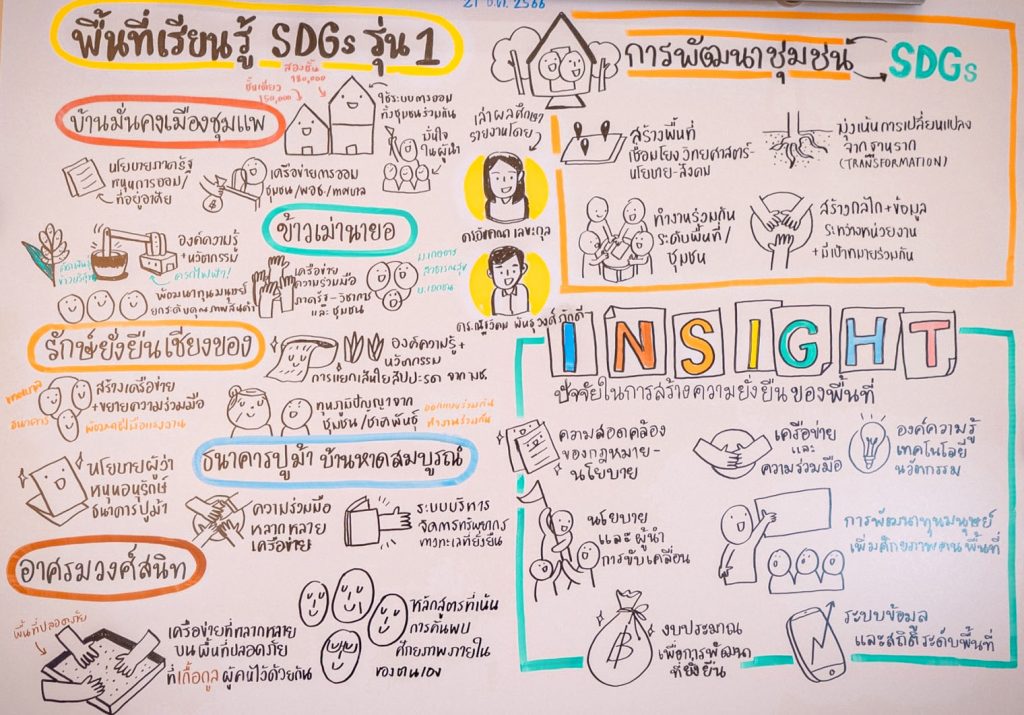 21 ธ.ค. 2566
พื้นที่เรียนรู้ SDGs รุ่น 1
บ้านมั่นคงเมืองชุมแพ
ชั้นเดียว
150,000
สองชั้น
180,000
ใช้ระบบการออม
ทั้งชุมชนร่วมกัน
มั่นใจ
ในผู้นำ
นโยบายภาครัฐ
หนุนการออม/
ที่อยู่อาศัย
เครือข่ายการออม
ชุมชน/พอช./เทศบาล
ข้าวเม่านายอ
องค์ความรู้
+นวัตกรรม
ครกไฟฟ้า!
พัฒนาทุนมนุษย์
ยกระดับคุณภาพสินค้า
เครือข่าย
ความร่วมมือ
ภาครัฐ-วิชาการ
และ ชุมชน
ม.เกษตร
สาธารณสุข
บ.เอกชน
รักษ์ยั่งยืน เชียงของ
องค์ความรู้+
นวัตกรรม
การแยกเส้นใยสับปะรด จาก มช.
เทศบาล
ธนาคาร
สร้างเครือข่าย
+ขยายความร่วมมือ
พัฒนาฝีมือแรงงาน
ทุนภูมิปัญญาจาก
ชุมชน/ชาติพันธุ์
ออกแบบร่วมกัน
ทำงานร่วมกัน
ธนาคารปูม้า บ้านหาดสมบูรณ์
นโยบายผู้ว่า
หนุนอนุรักษ์
ธนาคารปูม้า
ความร่วมมือ
หลากหลาย
เครือข่าย
ระบบบริหาร
จัดการทรัพยากร
ทางทะเลที่ยั่งยืน
อาศรมวงศ์สนิท
พื้นที่ปลอดภัย
เครือข่ายที่หลากหลาย
บน พื้นที่ปลอดภัย
ที่เกื้อกูล ผู้คนไว้ด้วยกัน
หลักสูตรที่เน้น
การค้นพบ
ศักยภาพภายใน
ของตนเอง
เล่าผลศึกษา
รายงานโดย
การพัฒนาชุมชน
SDGs
สร้างพื้นที่
เชื่อมโยงวิทยาศาสตร์-
นโยบาย-สังคม
มุ่งเน้นการเปลี่ยนแปลง
จากฐานราก
(TRANSFORMATION)
ทำงานร่วมกัน
ระดับพื้นที่/
ชุมชน
สร้างกลไก+ข้อมูล
ระหว่างหน่วยงาน
+มีเป้าหมายร่วมกัน
INSIGHT
ปัจจัยในการสร้างความยั่งยืนของพื้นที่
ความสอดคล้อง
ของกฎหมาย-
นโยบาย
เครือข่าย
และ
ความร่วมมือ
องค์ความรู้
เทคโนโลยี
นวัตกรรม
นโยบาย
และ ผู้นำ
การขับเคลื่อน
การพัฒนาทุนมนุษย์
เพิ่มศักยภาพคน พื้นที่
งบประมาณ
เพื่อการพัฒนา
ที่ยั่งยืน
ระบบข้อมูล
และสถิติระดับพื้นที่